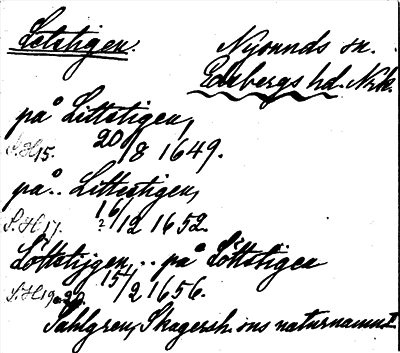 Letstigen.
Nysunds sn.
Edsbergs hd. Nrk.
på Littstigen,
S.H 15. 20/8 1649.
på.. Littestigen,
S.H 17. 16/2 1652.
Löttstijgen, .. på Löttstigen
S.H 19, 15/2 1656.
Sahlgren, Skagersh. ons naturnamn I